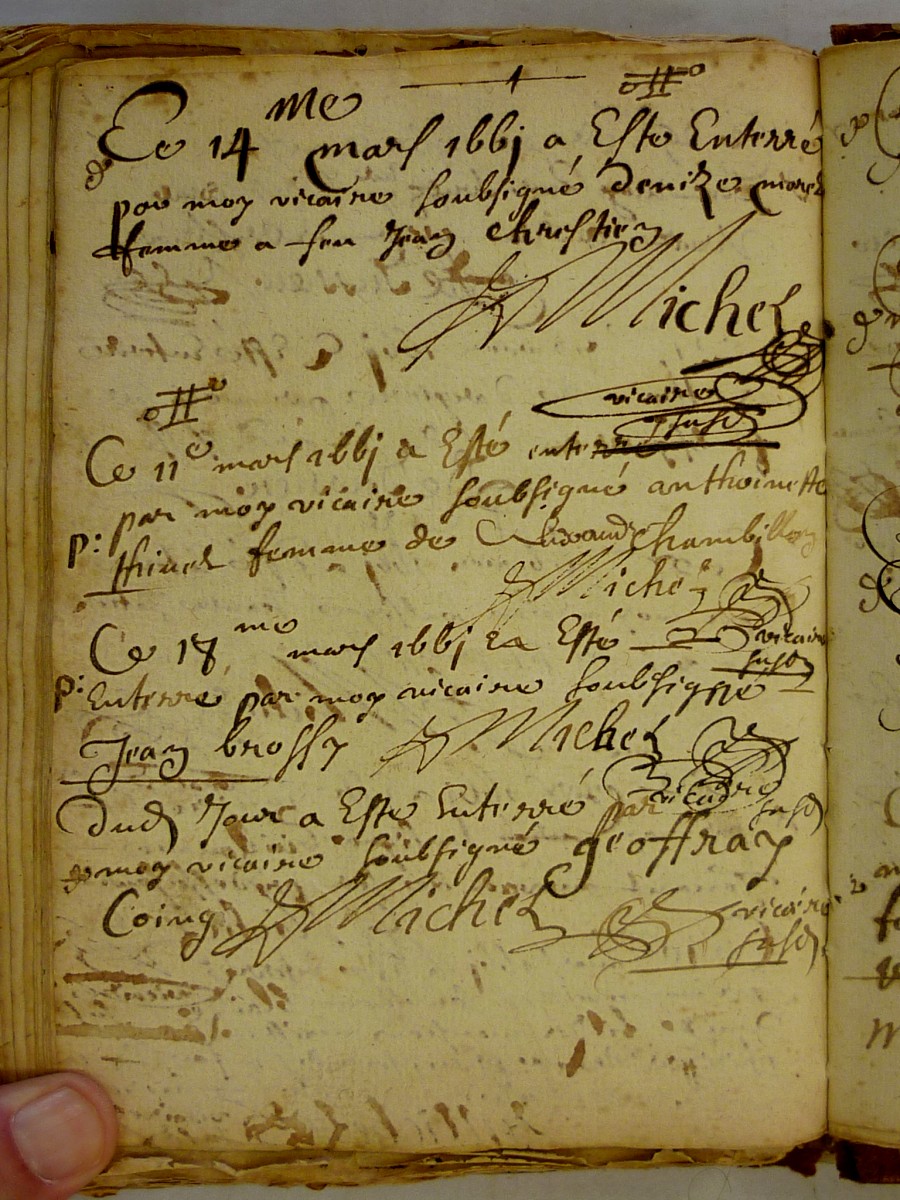 Ce 14me mars 1661 a Esté Enterré
par moy vicaire soubsigné denize
femme a feu Jean chrestien
Michel
vicaire
susd
Ce 11e mars 1661 a Esté enterré
par moy vicaire soubsigné anthoinette
p:
femme de
Michel
vicaire
susd
Ce 18me mars 1661 a Esté
p: Enterré par moy vicaire soubsigné
Jean brossy Michel
vicaire
susd
Dud Jour a Esté Enterré par
moy vicaire soubsigné geoffray
Coing Michel vicaire
susd